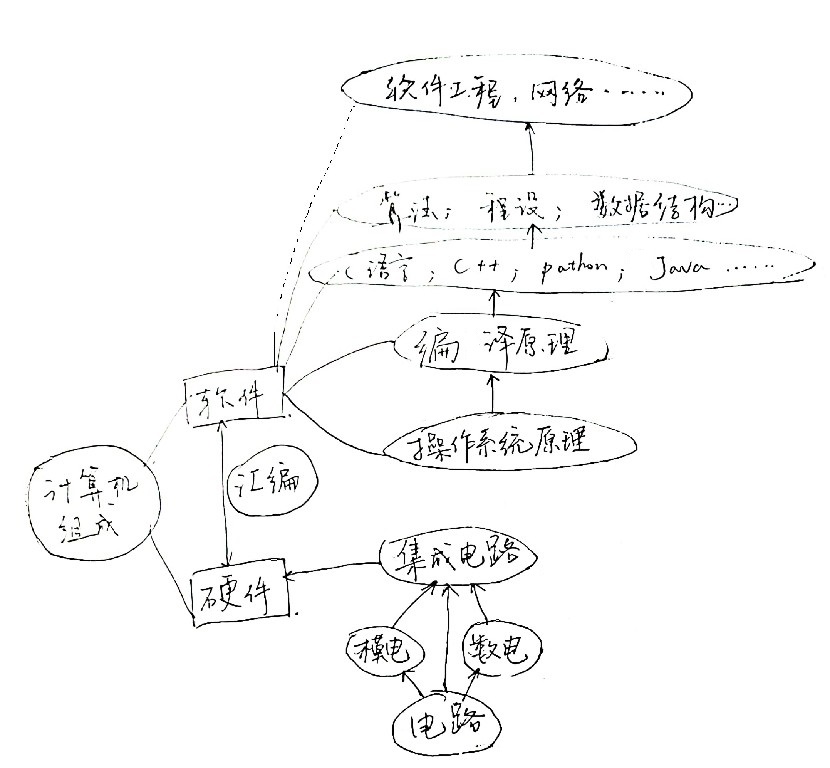 软件工程、网络……
算法；程设；数据结构…
C语言；C++；pathon；Java……
编译原理
软件
操作系统原理
汇编
计算机
组成
集成电路
硬件
模电
数电
电路